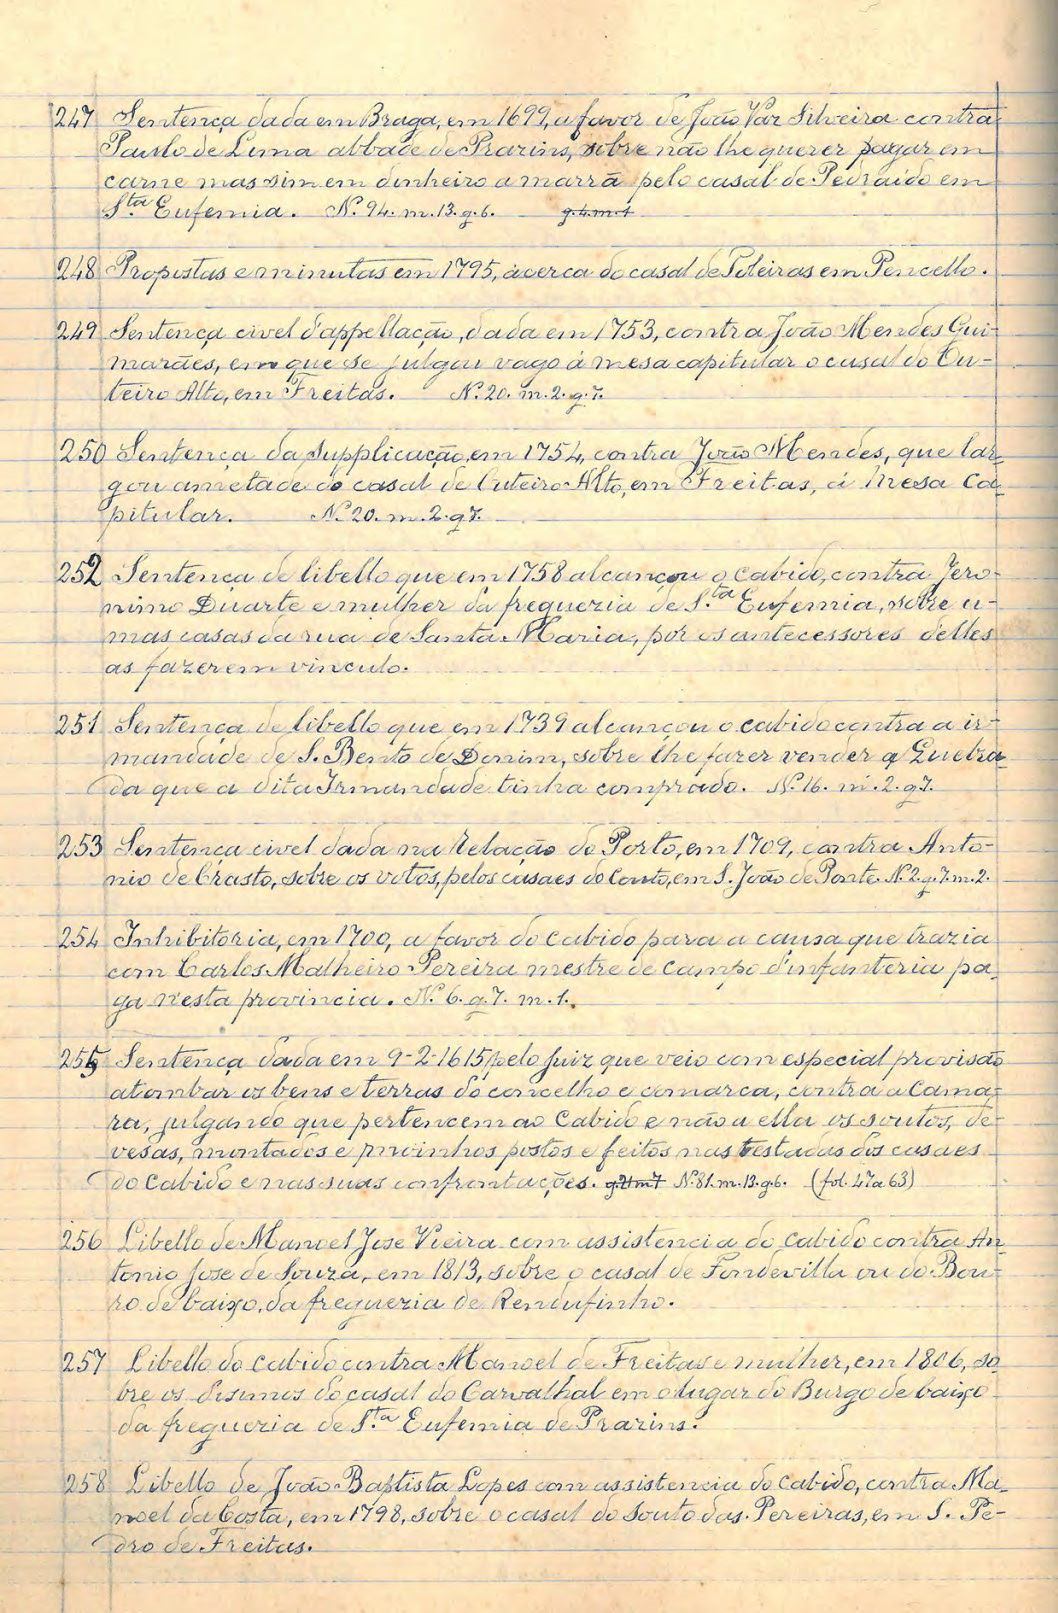 247 Sentença dada em Braga, em 1699, a favor de João Vaz Silveira contra
Paulo de Lima abbade de Prazins, sobre não lhe querer pagar em
carne mas sim em dinheiro a marrã pelo casal de Pedraido em
S.ta Eufemia. N.º 94. m. 13. g. 6. g. 4. m. 1
248 Propostas e minutas em 1795, ácerca do casal de Poleiras em Pencello.
249 Sentença civel d'appellação, dada em 1753, contra João Mendes Gui-
marães, em que se julgou vago á mesa capitular o casal do Ou-
teiro Alto, em Freitas. N.º 20. m. 2. g. 7.
250 Sentença da Supplicação, em 1754, contra João Mendes, que lar-
gou ametade do casal de Outeiro Alto, em Freitas, á Mesa Ca-
pitular. N.º 20. m. 2. g 7.
252 Sentença de libello que em 1758 alcançou o cabido, contra Jero-
nimo Duarte e mulher da freguezia de S.ta Eufemia, sobre u-
mas casas da rua de Santa Maria, por os antecessores delles
as fazerem vinculo.
251 Sentença de libello que em 1739 alcançou o cabido contra a ir-
mandade de S. Bento de Donim, sobre lhe fazer vender a Quebra-
da que a dita Irmandade tinha comprado. N.º 16. m. 2. g 7.
253 Sentença civel dada na Relação do Porto, em 1709, contra Anto-
nio de Crasto, sobre os votos, pelos casaes do Couto, em S. João de Ponte. N.º 2. g. 7. m. 2.
254 Inhibitoria, em 1700, a favor do cabido para a causa que trazia
com Carlos Malheiro Pereira mestre de campo d'infanteria pa-
ga nesta provincia. N.º 6. g. 7. m. 1.
255 Sentença dada em 9-2-1615 pelo Juiz que veio com especial provisão
atombar os bens e terras do concelho e comarca, contra a Cama-
ra, julgando que pertencem ao Cabido e não a ella os soutos, de-
vesas, montados e moinhos postos e feitos nas testadas dos casaes
do Cabido e nas suas confrontações. g. 7. m 7 N.º 81. m. 13. g. 6. (fol. 47 a 63)
256 Libello de Manoel Jose Vieira com assistencia do cabido contra An-
tonio Jose de Souza, em 1813, sobre o casal de Fondevilla ou do Bou-
ro de baixo, da freguezia de Rendufinho.
257 Libello do cabido contra Manoel de Freitas e mulher, em 1806, so-
bre os disimos do casal do Carvalhal em o lugar do Burgo de baixo
da freguezia de S.ta Eufemia de Prazins.
258 Libello de João Baptista Lopes com assistencia do cabido, contra Ma-
noel da Costa, em 1798, sobre o casal do Souto das Pereiras, em S. Pe-
dro de Freitas.